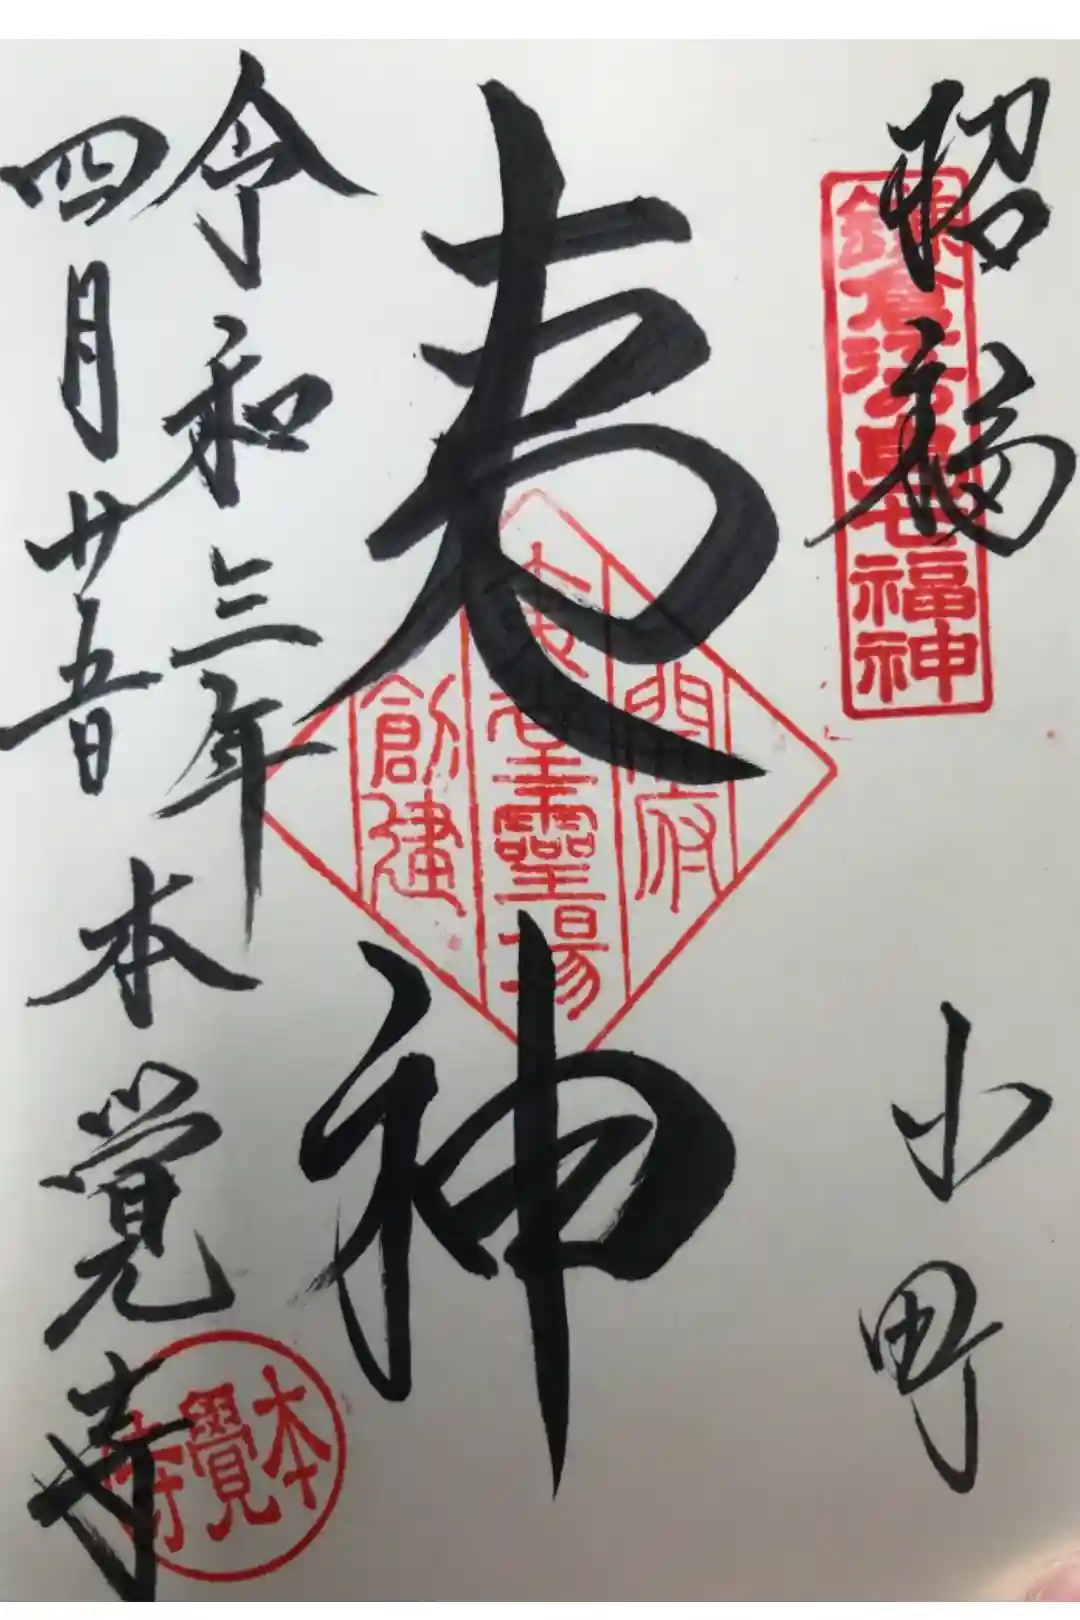 招福
小町
鎌倉江の島七福神
夷神
開府
夷堂霊場
創建
令和三年
四月廿五日 本覚寺
本覺寺